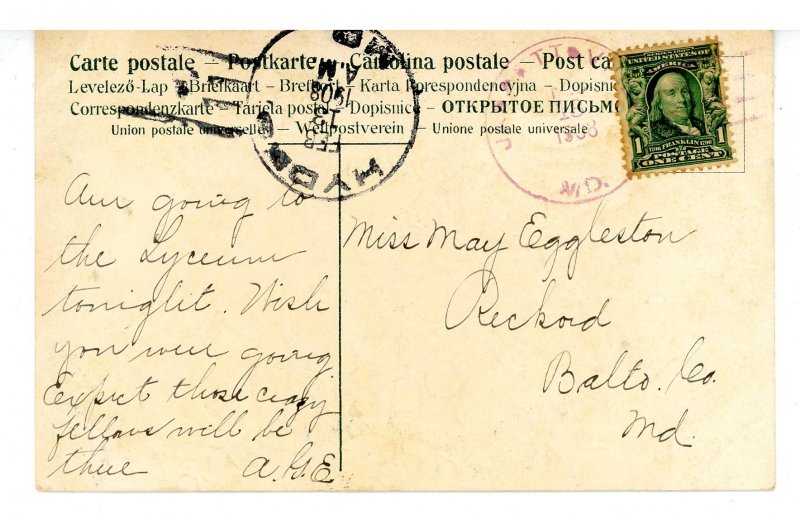 Carte postale — Postkarte — Cartolina postale — Post ca
Levelező-Lap — Briefkaart — Brefkort — Karta Korespondencyjna — Dopisni
Correspondenzkarte — Tarjeta postal — Dopisnice — ОТКРЫТОЕ ПИСЬМО
Union postale universelle — Weltpostverein — Unione postale universale
HYDE
MD
A.M.
1908
13
FEB
1908
MD.
SERIES 1902
UNITED STATES OF
AMERICA
1
1
1706 FRANKLIN 1790
POSTAGE
ONE CENT
Am going to
the Lyceum
tonight. Wish
you were going
Expect those crazy
fellows will be
there
A.G.E
Miss May Eggleston
Reckord
Balto. Co.
Md.